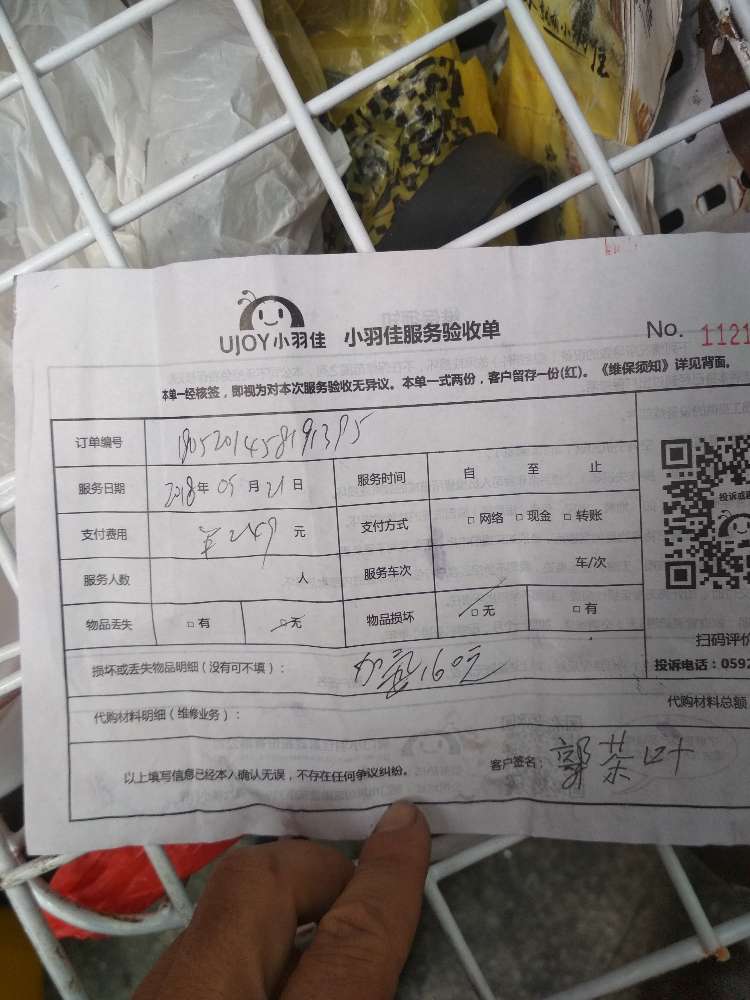 UJOY小羽佳 小羽佳服务验收单 No. 1121
本单一经核签，即视为对本次服务验收无异议。本单一式两份，客户留存一份(红)。《维保须知》详见背面。
订单编号
服务日期 2018年 05月 21日 服务时间 自 至 止
支付费用 ¥249 元 支付方式 □ 网络 □ 现金 □ 转账
服务人数 人 服务车次 车/次
物品丢失 □ 有 □ 无 物品损坏 □ 无 □ 有
扫码评价
损坏或丢失物品明细（没有可不填）： 加氟160元
投诉电话：0592
代购材料明细（维修业务）： 代购材料总额
以上填写信息已经本人确认无误，不存在任何争议纠纷。 客户签名：郭茶叶